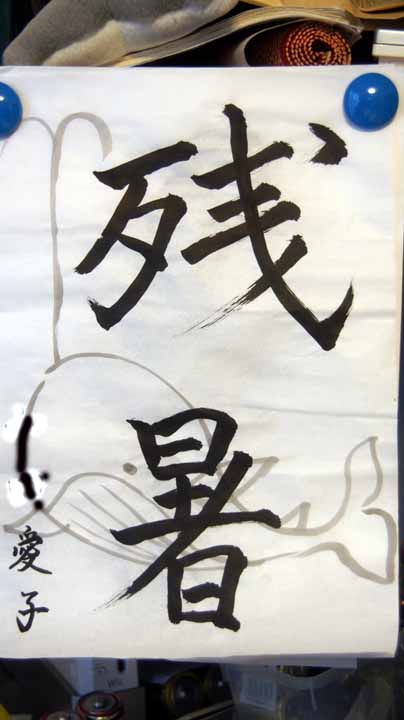 残暑
愛子